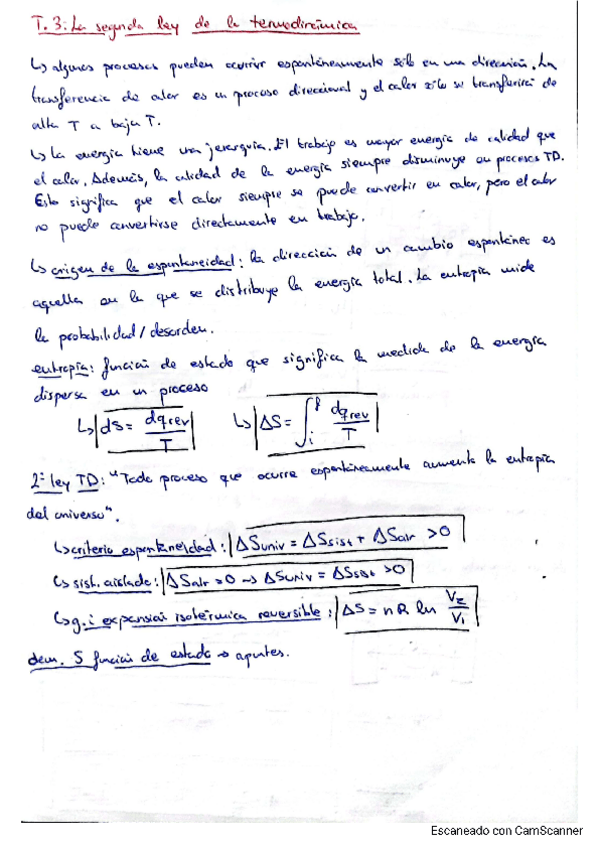 T. 3: La segunda ley de la termodinámica
↳ algunos procesos pueden ocurrir espontáneamente sólo en una dirección. La
transferencia de calor es un proceso direccional y el calor sólo se transferirá de
alta T a baja T.
↳ La energía tiene una jerarquía. El trabajo es mayor energía de calidad que
el calor. Además, la calidad de la energía siempre disminuye en procesos TD.
Esto significa que el calor siempre se puede convertir en calor, pero el calor
no puede convertirse directamente en trabajo.
↳ origen de la espontaneidad: la dirección de un cambio espontáneo es
aquella en la que se distribuye la energía total. La entropía mide
la probabilidad/desorden.
entropía: función de estado que significa la medida de la energía
dispersa en un proceso
↳ dS = dqrev/T ↳ ΔS = ∫ᵢᶠ dqrev/T
2ª ley TD: "Todo proceso que ocurre espontáneamente aumenta la entropía
del universo".
↳ criterio espontaneidad: ΔSuniv = ΔSsist + ΔSalr > 0
↳ sist. aislado: ΔSalr = 0 → ΔSuniv = ΔSsist > 0
↳ g.i expansión isotérmica reversible: ΔS = nR ln V₂/V₁
dem. S función de estado → apuntes.
Escaneado con CamScanner